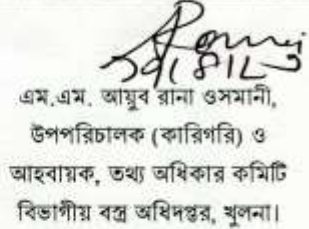 এম.এম. আয়ুব রানা ওসমানী,
উপপরিচালক (কারিগরি) ও
আহবায়ক, তথ্য অধিকার কমিটি
বিভাগীয় বস্ত্র অধিদপ্তর, খুলনা।